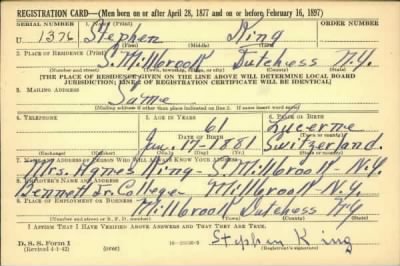 REGISTRATION CARD—(Men born on or after April 28, 1877 and on or before February 16, 1897)
SERIAL NUMBER 1. NAME (Print) ORDER NUMBER
U 1376 Stephen King
(First) (Middle) (Last)
2. PLACE OF RESIDENCE (Print)
S. Millbrook Dutchess N.Y.
(Number and street) (Town, township, village, or city) (County) (State)
[THE PLACE OF RESIDENCE GIVEN ON THE LINE ABOVE WILL DETERMINE LOCAL BOARD
JURISDICTION; LINE 2 OF REGISTRATION CERTIFICATE WILL BE IDENTICAL]
3. MAILING ADDRESS
Same
(Mailing address if other than place indicated on line 2. If same insert word same)
4. TELEPHONE 5. AGE IN YEARS 6. PLACE OF BIRTH
61 Lucerne
DATE OF BIRTH (Town or county)
Jan. 17-1881 Switzerland.
(Exchange) (Number) (Mo.) (Day) (Yr.) (State or country)
7. NAME AND ADDRESS OF PERSON WHO WILL ALWAYS KNOW YOUR ADDRESS
Mrs. Agnes King - S. Millbrook - N.Y.
8. EMPLOYER'S NAME AND ADDRESS
Bennett Jr. College - Millbrook N.Y.
9. PLACE OF EMPLOYMENT OR BUSINESS
Millbrook Dutchess N.Y.
(Number and street or R. F. D. number) (Town) (County) (State)
I AFFIRM THAT I HAVE VERIFIED ABOVE ANSWERS AND THAT THEY ARE TRUE.
D. S. S. Form 1
(Revised 4-1-42) (over) Stephen King
(Registrant's signature)